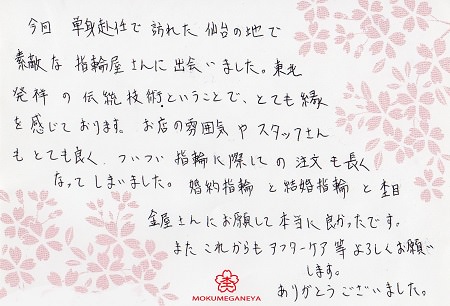 今回 単身赴任で訪れた仙台の地で
素敵な指輪屋さんに出会いました。東北
発祥の伝統技術ということで、とても縁
を感じております。お店の雰囲気やスタッフさん
もとても良く、ついつい指輪に際しての注文も長く
なってしまいました。婚約指輪と結婚指輪と杢目
金屋さんにお願して本当に良かったです。
またこれからもアフターケア等よろしくお願い
します。
ありがとうございました。
MOKUMEGANEYA